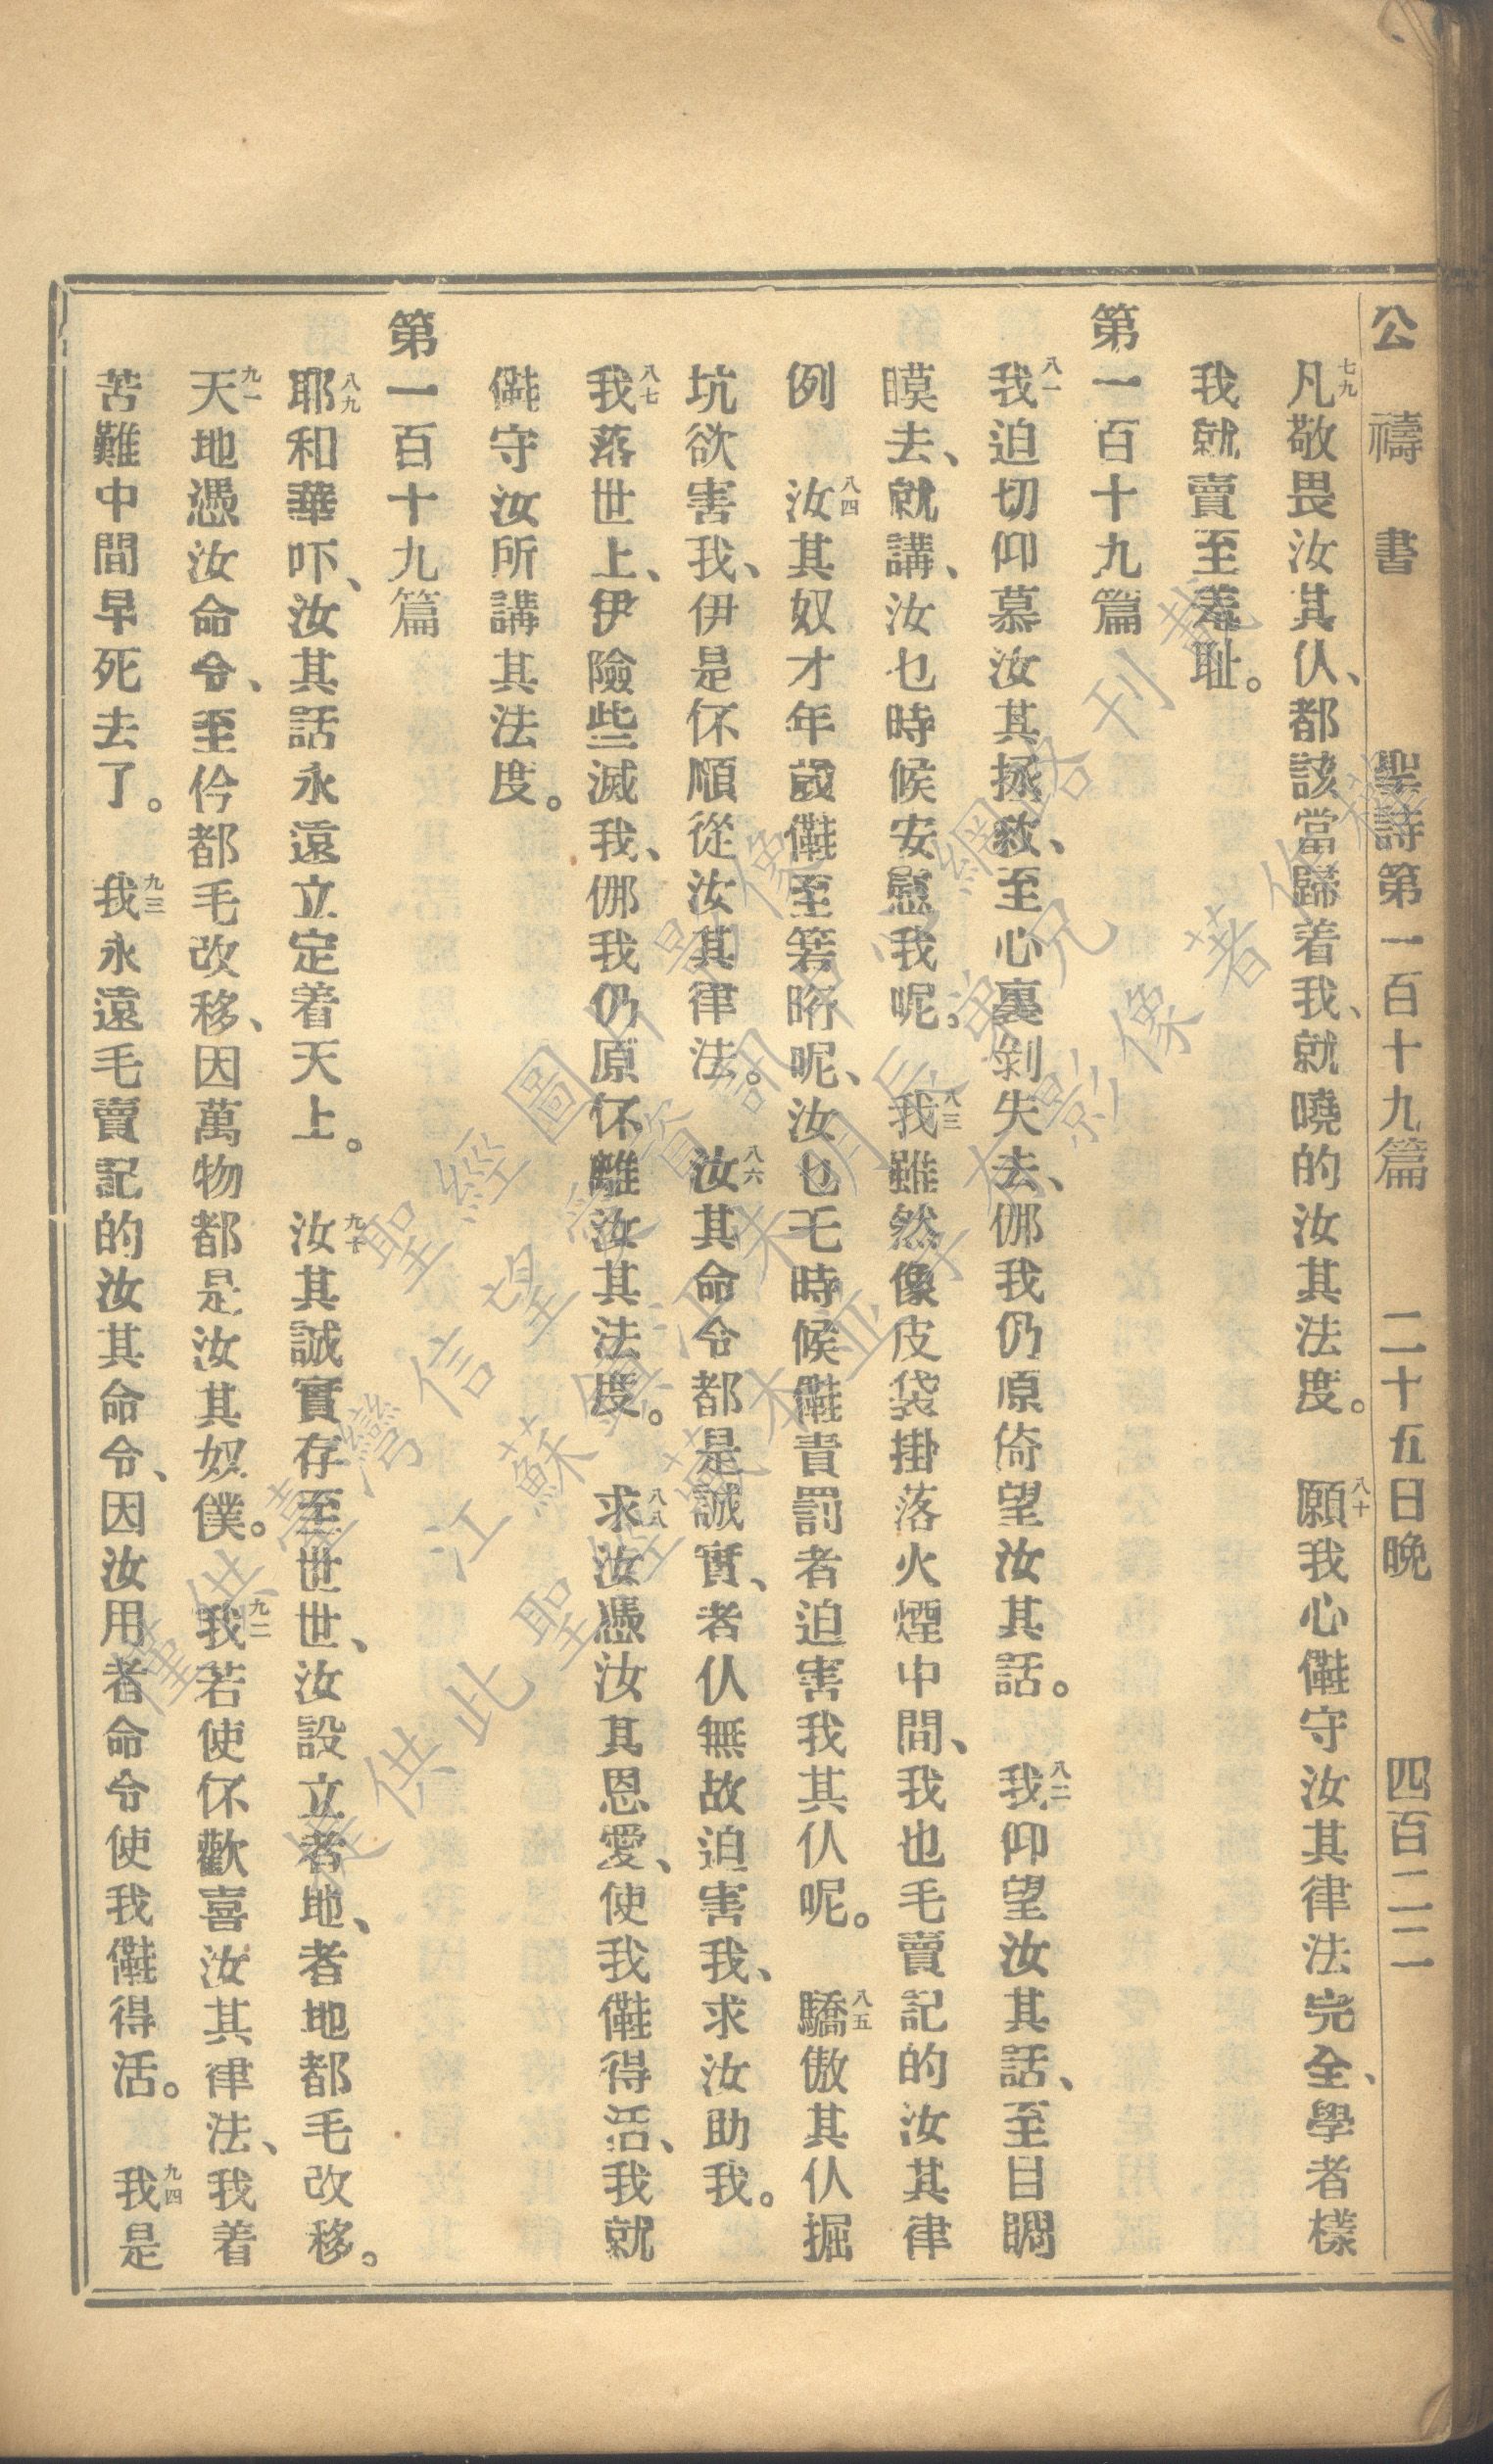 公禱書 聖詩第一百十九篇 二十五日晚 四百二二
七九凡敬畏汝其仈、都該當歸着我、就曉的汝其法度。 八十願我心㒓守汝其律法完全、學者樣
我就賣至羞恥。
第一百十九篇
八一我迫切仰慕汝其拯救、至心裏剝失去、倻我仍原倚望汝其話。 八二我仰望汝其話、至目睭
瞙去、就講、汝乜時候安慰我呢。 八三我雖然像皮袋掛落火煙中間、我也毛賣記的汝其律
例 八四汝其奴才年歲㒓至箬昕呢、汝乜乇時候㒓責罰者迫害我其仈呢。 八五驕傲其仈掘
坑欲害我、伊是伓順從汝其律法。 八六汝其命令都是誠實、者仈無故迫害我、求汝助我。
八七我落世上、伊險些滅我、倻我仍原伓離汝其法度。 八八求汝憑汝其恩愛、使我㒓得活、我就
㒓守汝所講其法度。
第一百十九篇
八九耶和華吓、汝其話永遠立定着天上。 九十汝其誠實存至世世、汝設立者地、者地都毛改移。
九一天地憑汝命令、至仱都毛改移、因萬物都是汝其奴僕。 九二我若使伓歡喜汝其律法、我着
苦難中間早死去了。 九三我永遠毛賣記的汝其命令、因汝用者命令使我㒓得活。 九四我是